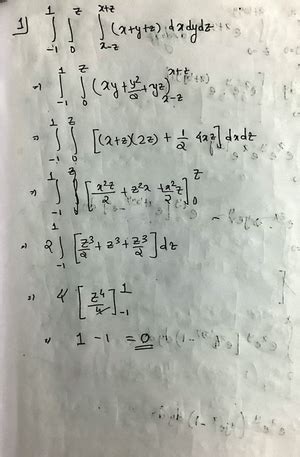 1) ∫₋₁¹ ∫₀ᶻ ∫ₓ₋zˣ⁺ᶻ (x+y+z) dxdydz
⇒ ∫₋₁¹ ∫₀ᶻ (xy + y²/2 + yz)ₓ₋zˣ⁺ᶻ
⇒ ∫₋₁¹ ∫₀ᶻ [(x+z)(2z) + 1/2 4xz] dxdz
⇒ ∫₋₁¹ [x²z/2 + z²x + x²/2 z]₀ᶻ
⇒ 2 ∫₋₁¹ [z³/2 + z³ + z³/2] dz
⇒ 4 [z⁴/4]₋₁¹
⇒ 1 - 1 = 0